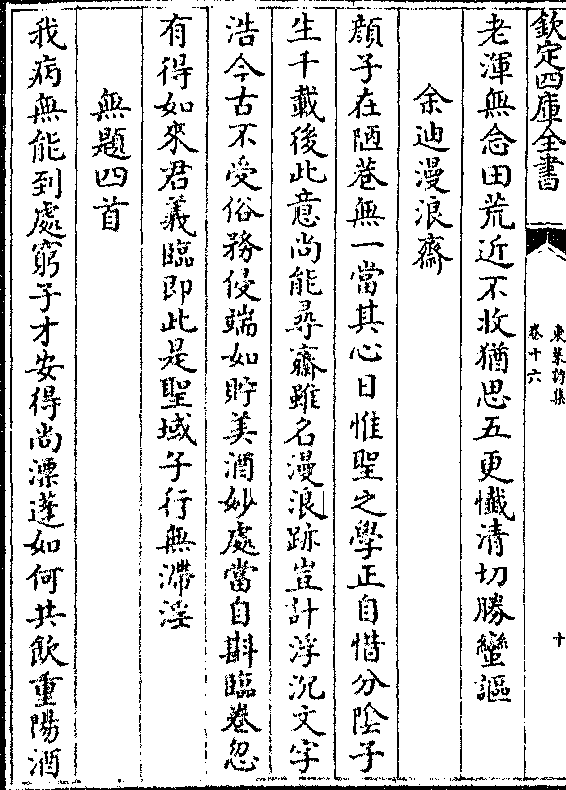 欽定四庫全書
東萊詩集
卷十六
十
老渾無念田荒近不收猶思五更懺清切勝蠻謳
余迪漫浪齋
顔子在陋巷無一當其心日惟聖之學正自惜分陰子
生千載後此意尚能尋齋雖名漫浪跡豈計浮沉文字
浩今古不受俗務侵端如貯美酒妙處當自斟臨卷忽
有得如來君義臨即此是聖域子行無滯淫
無題四首
我病無能到處窮子才安得尚漂蓬如何共飲重陽酒